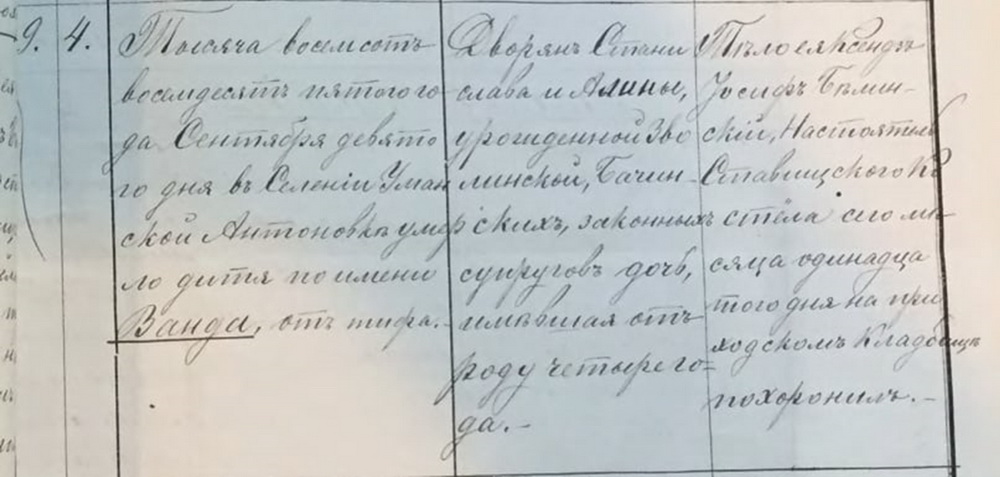 9. 4.
Тысяча восемсотъ
восемдесятъ пятого го-
да Сентября девято
го дня въ Селеніи Уман
ской Антоновкѣ умер
ло дитя по имени
Ванда, отъ тифа.-
Дворянъ Стани
слава и Алины,
урожденной Зво
линской, Бачин-
скихъ, законныхъ
супруговъ дочь,
имѣвшая отъ
роду четыре го=
да.-
Тѣло ея Ксендзъ
Іосифъ Бѣлин-
скій, Настоятель
Ставищского Ко
стела сего мѣ-
сяца одинадца
того дня на при
ходскомъ Кладбищѣ
похоронилъ.-